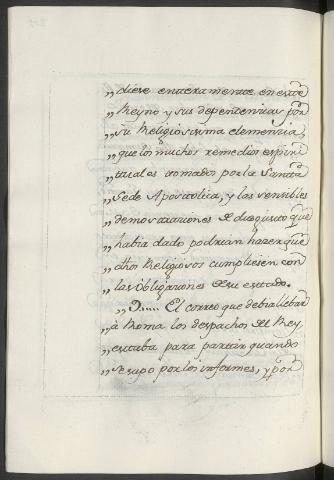 „ diese enteramente en este
„ Reyno y sus dependencias por
„ su Religiosissima clemencia,
„ que los muchos remedios espiri
„ tuales tomados por la Santa
„ Sede Apostolica, y las sensibles
„ demostraziones de disgusto que
„ havia dado podrian hazer que
„ dhos Religiosos cumpliesen con
„ las Obligaziones de su estado.
„ El correo que debia llebar
„ à Roma los despachos del Rey
„ estaba para partir quando
„ se supo por los informes, y por